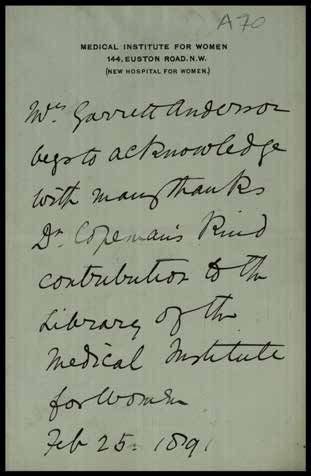 A70
MEDICAL INSTITUTE FOR WOMEN
144, EUSTON ROAD. N.W.
(NEW HOSPITAL FOR WOMEN.)
Mrs Garrett Anderson
begs to acknowledge
with many thanks
Dr. Copeman's kind
contribution to the
Library of the
Medical Institute
for Women
Feb 25. 1891